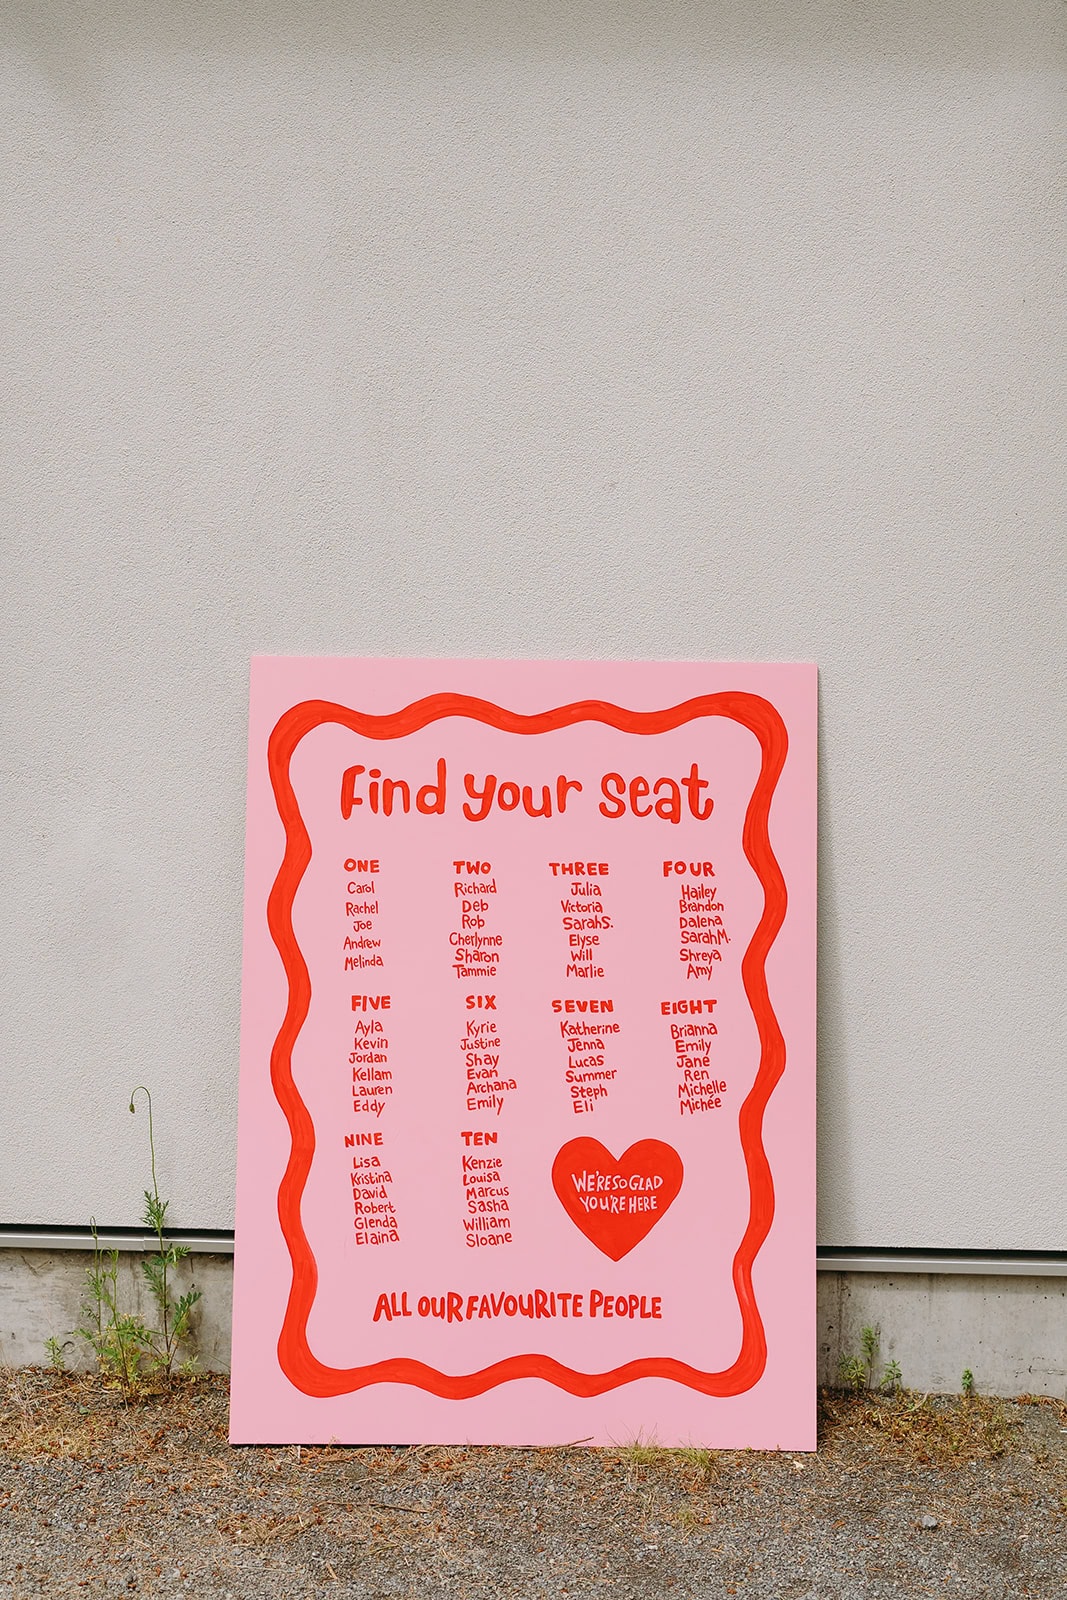 Find your seat
ONE
Carol
Rachel
Joe
Andrew
Melinda
TWO
Richard
Deb
Rob
Cherlynne
Sharon
Tammie
THREE
Julia
Victoria
Sarah S.
Elyse
Will
Marlie
FOUR
Hailey
Brandon
Dalena
Sarah M.
Shreya
Amy
FIVE
Ayla
Kevin
Jordan
Kellam
Lauren
Eddy
SIX
Kyrie
Justine
Shay
Evan
Archana
Emily
SEVEN
Katherine
Jenna
Lucas
Summer
Steph
Eli
EIGHT
Brianna
Emily
Jane
Ren
Michelle
Michée
NINE
Lisa
Kristina
David
Robert
Glenda
Elaina
TEN
Kenzie
Louisa
Marcus
Sasha
William
Sloane
WE'RE SO GLAD
YOU'RE HERE
ALL OUR FAVOURITE PEOPLE